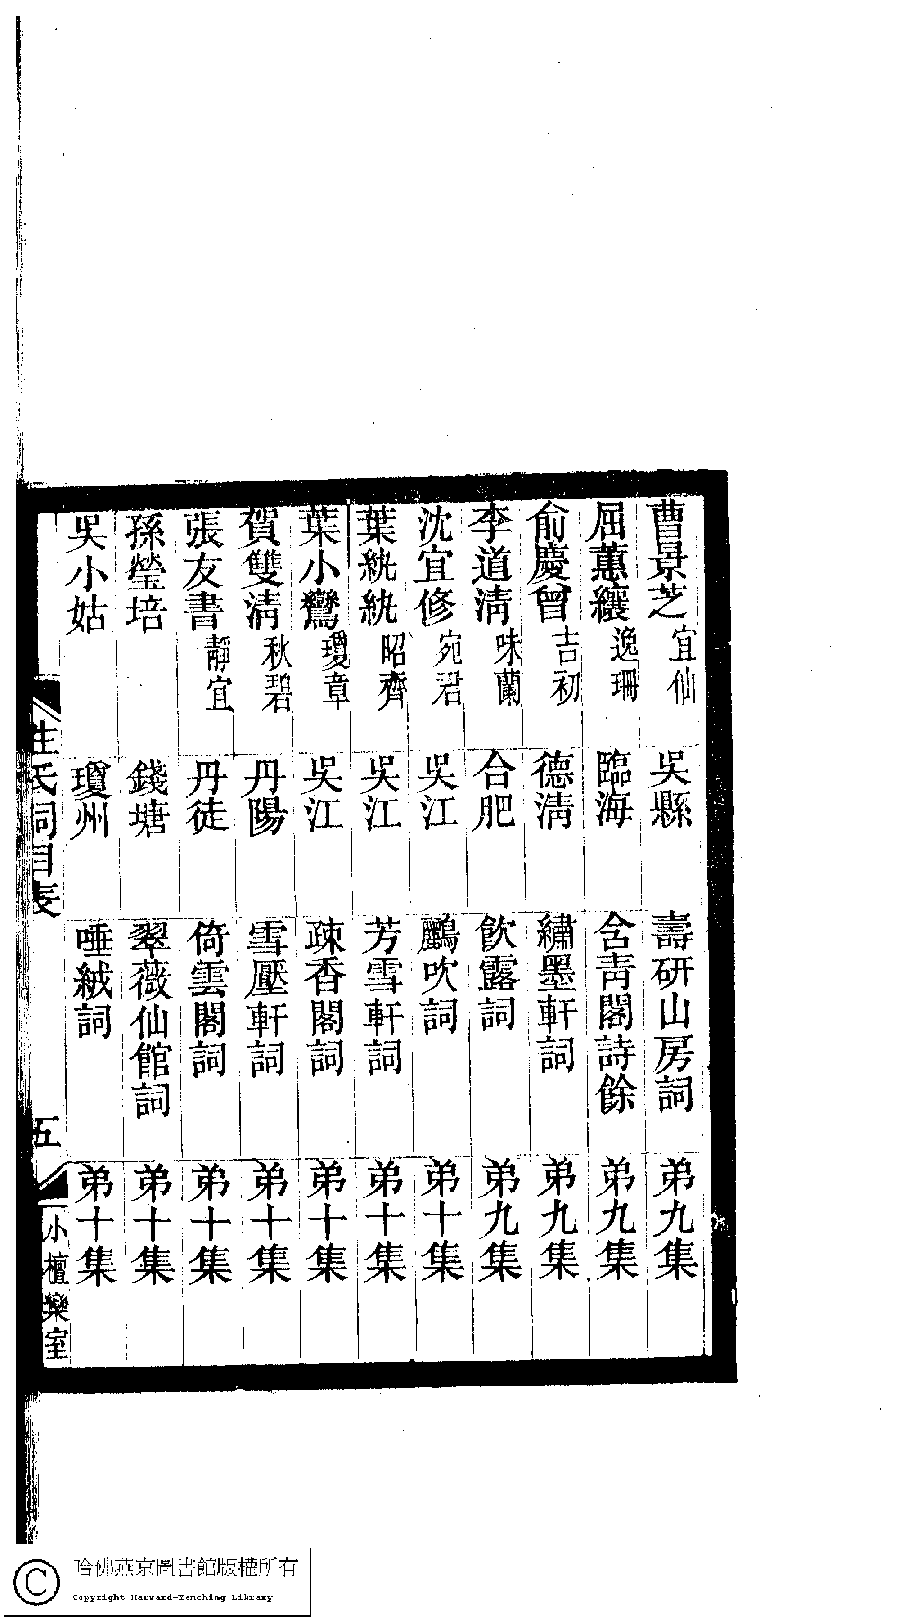 曹景芝 宜仙 吳縣 壽研山房詞 弟九集
屈蕙纕 逸珊 臨海 含青閣詩餘 弟九集
俞慶曾 吉初 德清 繡墨軒詞 弟九集
李道清 味蘭 合肥 飲露詞 弟九集
沈宜修 宛君 吳江 鸝吹詞 弟十集
葉紈紈 昭齊 吳江 芳雪軒詞 弟十集
葉小鸞 瓊章 吳江 疎香閣詞 弟十集
賀雙清 秋碧 丹陽 雪壓軒詞 弟十集
張友書 靜宜 丹徒 倚雲閣詞 弟十集
孫瑩培 錢塘 翠薇仙館詞 弟十集
吳小姑 瓊州 唾絨詞 弟十集
姓氏詞目表 五 小檀欒室
哈佛燕京圖書館版權所有
Copyright Harvard-Yenching Library